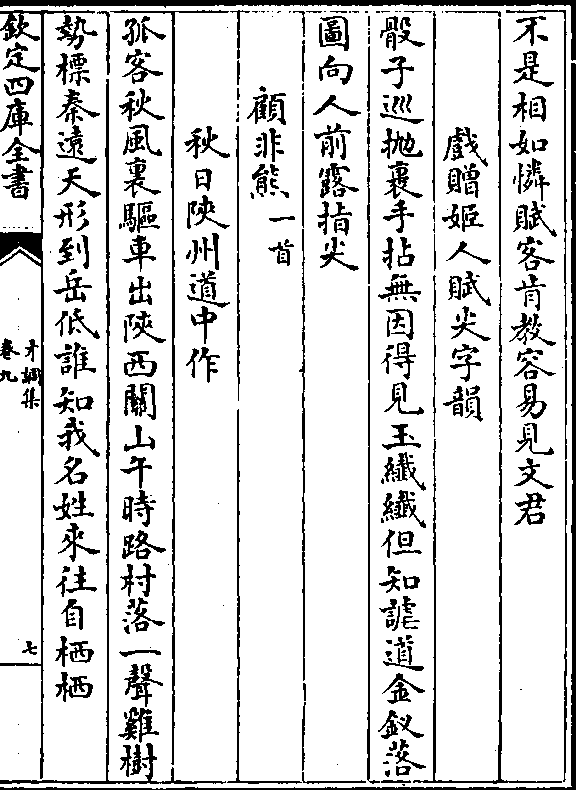 不是相如憐賦客肯教容易見文君
戲贈姬人賦尖字韻
骰子巡抛裹手拈無因得見玉纖纖但知謔道金釵落
圖向人前露指尖
顧非熊一首
秋日陜州道中作
孤客秋風裏驅車出陜西關山午時路村落一聲雞樹
勢標秦遠天形到岳低誰知我名姓來往自栖栖
欽定四庫全書
才調集
卷九
七